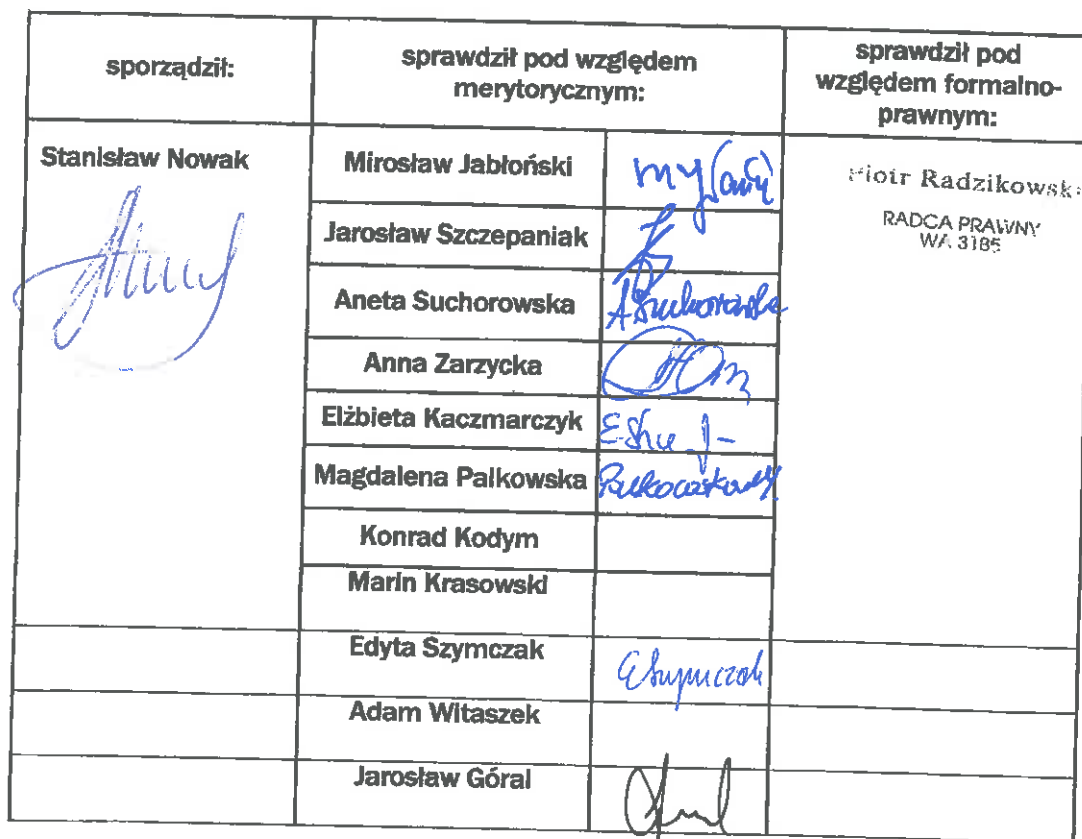 sporządził:
sprawdził pod względem
merytorycznym:
sprawdził pod
względem formalno-
prawnym:
Stanisław Nowak
Mirosław Jabłoński
Piotr Radzikowski
RADCA PRAWNY
WA 3185
Jarosław Szczepaniak
Aneta Suchorowska
ASuchorowska
Anna Zarzycka
Elżbieta Kaczmarczyk
Magdalena Palkowska
Konrad Kodym
Marin Krasowski
Edyta Szymczak
ESzymczak
Adam Witaszek
Jarosław Góral